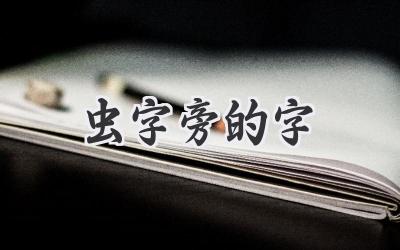 虫字旁的字